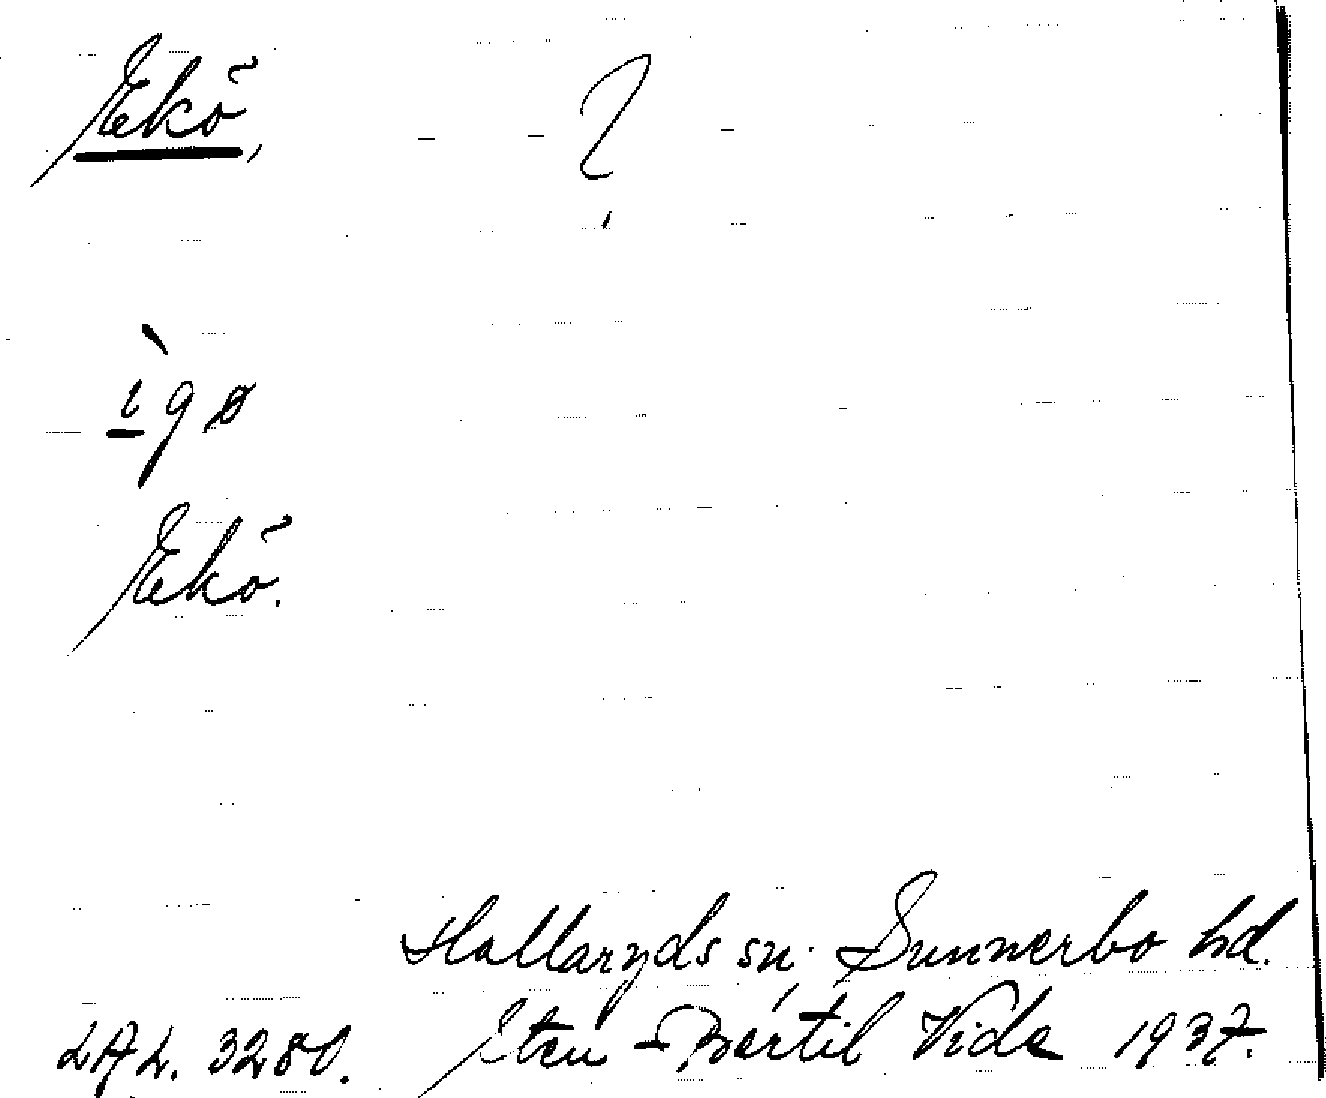 Ekö, ?
ìgø
Ekö.
Hallaryds sn. Sunnerbo hd.
LAL. 3280. Sten-Bertil Vide 1937.